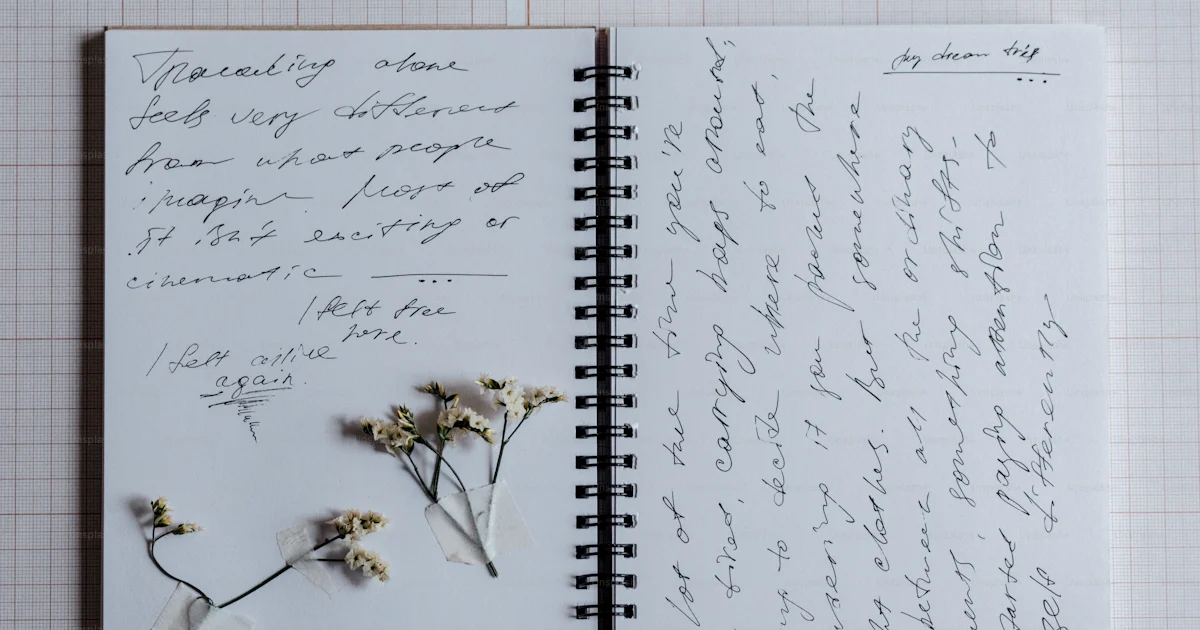 Traveling alone
feels very different
from what people
imagine. Most of
it isn't exciting or
cinematic ...
I felt free
here.
I felt alive
again.
my dream trip
...
lot of the time you're
tired, carrying bags around,
to decide where to eat,
if you packed the
clothes. But somewhere
between all the ordinary
something shifts.
paying attention to
differently